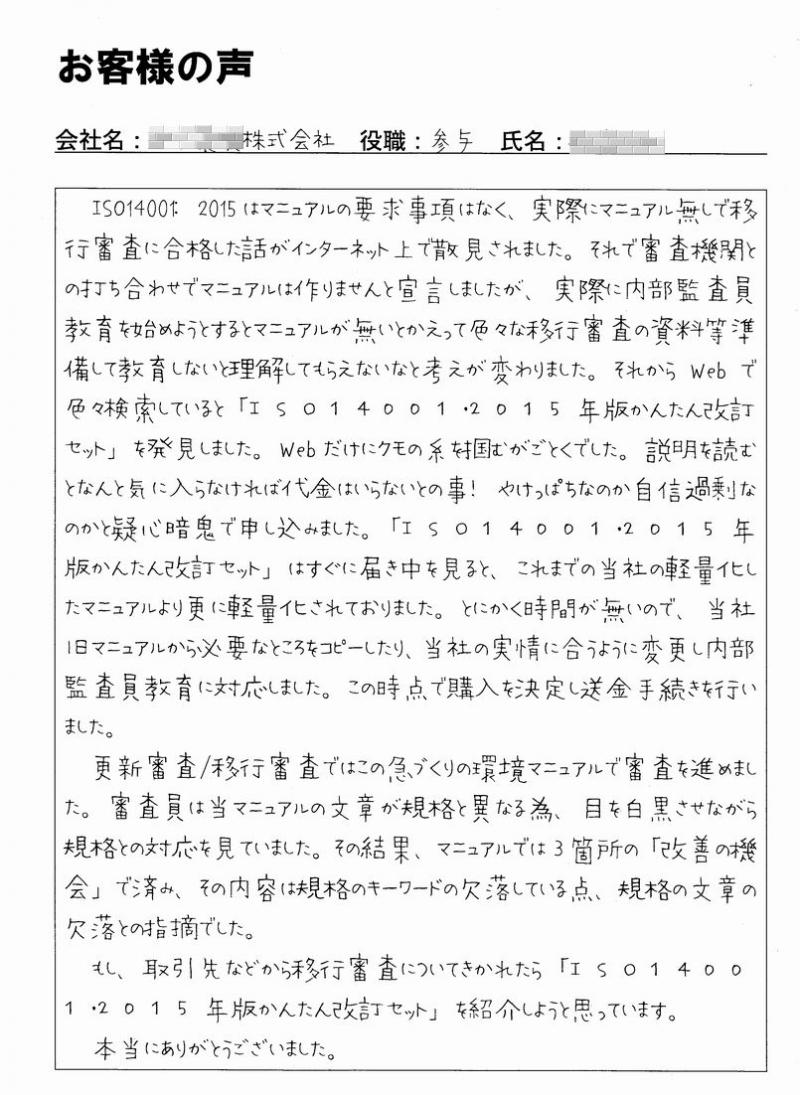 お客様の声
会社名：株式会社　役職：参与　氏名：
ISO14001：2015はマニュアルの要求事項はなく、実際にマニュアル無しで移
行審査に合格した話がインターネット上で散見されました。それで審査機関と
の打ち合わせでマニュアルは作りませんと宣言しましたが、実際に内部監査員
教育を始めようとするとマニュアルが無いとかえって色々な移行審査の資料等準
備して教育しないと理解してもらえないなと考えが変わりました。それからWebで
色々検索していると「ＩＳＯ１４００１・２０１５年版かんたん改訂
セット」を発見しました。Webだけにクモの糸を掴むがごとくでした。説明を読む
となんと気に入らなければ代金はいらないとの事！やけっぱちなのか自信過剰な
のかと疑心暗鬼で申し込みました。「ＩＳＯ１４００１・２０１５年
版かんたん改訂セット」はすぐに届き中を見ると、これまでの当社の軽量化し
たマニュアルより更に軽量化されておりました。とにかく時間が無いので、当社
旧マニュアルから必要なところをコピーしたり、当社の実情に合うように変更し内部
監査員教育に対応しました。この時点で購入を決定し送金手続きを行い
ました。
更新審査/移行審査ではこの急づくりの環境マニュアルで審査を進めまし
た。審査員は当マニュアルの文章が規格と異なる為、目を白黒させながら
規格との対応を見ていました。その結果、マニュアルでは3箇所の「改善の機
会」で済み、その内容は規格のキーワードの欠落している点、規格の文章の
欠落との指摘でした。
もし、取引先などから移行審査についてきかれたら「ＩＳＯ１４００
１・２０１５年版かんたん改訂セット」を紹介しようと思っています。
本当にありがとうございました。